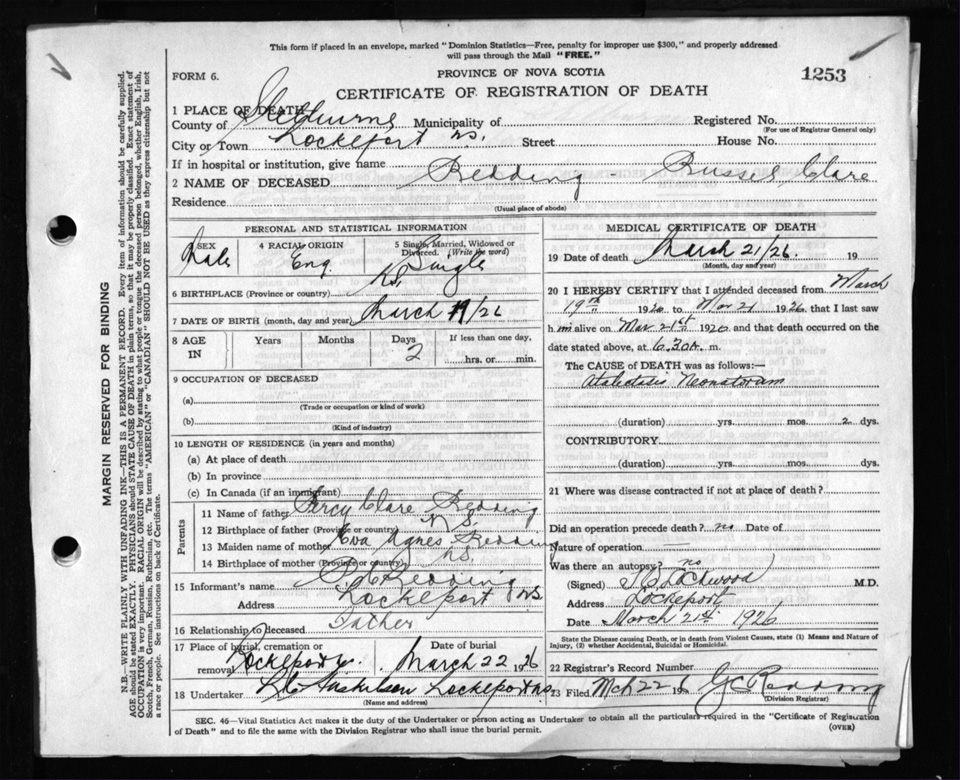 This form if placed in an envelope, marked "Dominion Statistics—Free, penalty for improper use $300," and properly addressed
will pass through the Mail "FREE."
FORM 6.
PROVINCE OF NOVA SCOTIA
1253
CERTIFICATE OF REGISTRATION OF DEATH
1 PLACE OF DEATH
County of Shelburne Municipality of Registered No.
(For use of Registrar General only)
City or Town Lockeport N.S. Street House No.
If in hospital or institution, give name
2 NAME OF DECEASED Redding - Russel Clare
Residence
(Usual place of abode)
PERSONAL AND STATISTICAL INFORMATION
SEX Male
4 RACIAL ORIGIN Eng.
5 Single, Married, Widowed or Divorced. (Write the word) Single
6 BIRTHPLACE (Province or country) N.S.
7 DATE OF BIRTH (month, day and year) March 19/26
8 AGE IN Years Months Days 2 If less than one day, hrs. or min.
9 OCCUPATION OF DECEASED
(a)
(Trade or occupation or kind of work)
(b)
(Kind of industry)
10 LENGTH OF RESIDENCE (in years and months)
(a) At place of death
(b) In province
(c) In Canada (if an immigrant)
Parents
11 Name of father Percy Clare Redding
12 Birthplace of father (Province or country) N.S.
13 Maiden name of mother Eva Agnes Redding
14 Birthplace of mother (Province or country) N.S.
15 Informant's name P. C. Redding
Address Lockeport N.S.
16 Relationship to deceased Father
17 Place of burial, cremation or removal Lockeport
Date of burial March 22 1926
18 Undertaker Lockeport N.S.
(Name and address)
MEDICAL CERTIFICATE OF DEATH
19 Date of death March 21/26. 19
(Month, day and year)
20 I HEREBY CERTIFY that I attended deceased from March
19th 1926 to Mar 21 1926 that I last saw
him alive on Mar 21st 1926 and that death occurred on
date stated above, at 6.30 A. m.
The CAUSE of DEATH was as follows:—
Atalectatis Neonatorum
(duration) yrs. mos. 2 dys.
CONTRIBUTORY
(duration) yrs. mos. dys.
21 Where was disease contracted if not at place of death?
Did an operation precede death? no Date of
Nature of operation —
Was there an autopsy? no
(Signed) Lockwood M.D.
Address Lockeport
Date March 21st 1926
State the Disease causing Death, or in death from Violent Causes, state (1) Means and Nature of
Injury, (2) whether Accidental, Suicidal or Homicidal.
22 Registrar's Record Number
23 Filed Mch 22 1926 G C Redding
(Division Registrar)
SEC. 46—Vital Statistics Act makes it the duty of the Undertaker or person acting as Undertaker to obtain all the particulars required in the "Certificate of Registration
of Death" and to file the same with the Division Registrar who shall issue the burial permit.
(OVER)
MARGIN RESERVED FOR BINDING
N.B.—WRITE PLAINLY WITH UNFADING INK—THIS IS A PERMANENT RECORD. Every item of information should be carefully supplied.
AGE should be stated EXACTLY. PHYSICIANS should STATE CAUSE OF DEATH in plain terms, so that it may be properly classified. Exact statement of
OCCUPATION is very important. RACIAL ORIGIN will be described by stating to what people or tongue the deceased person belonged, whether English, Irish,
Scotch, French, German, Russian, Ruthenian, etc. The terms "AMERICAN" or "CANADIAN" SHOULD NOT BE USED as they express citizenship but not
a race or people. See instructions on back of Certificate.